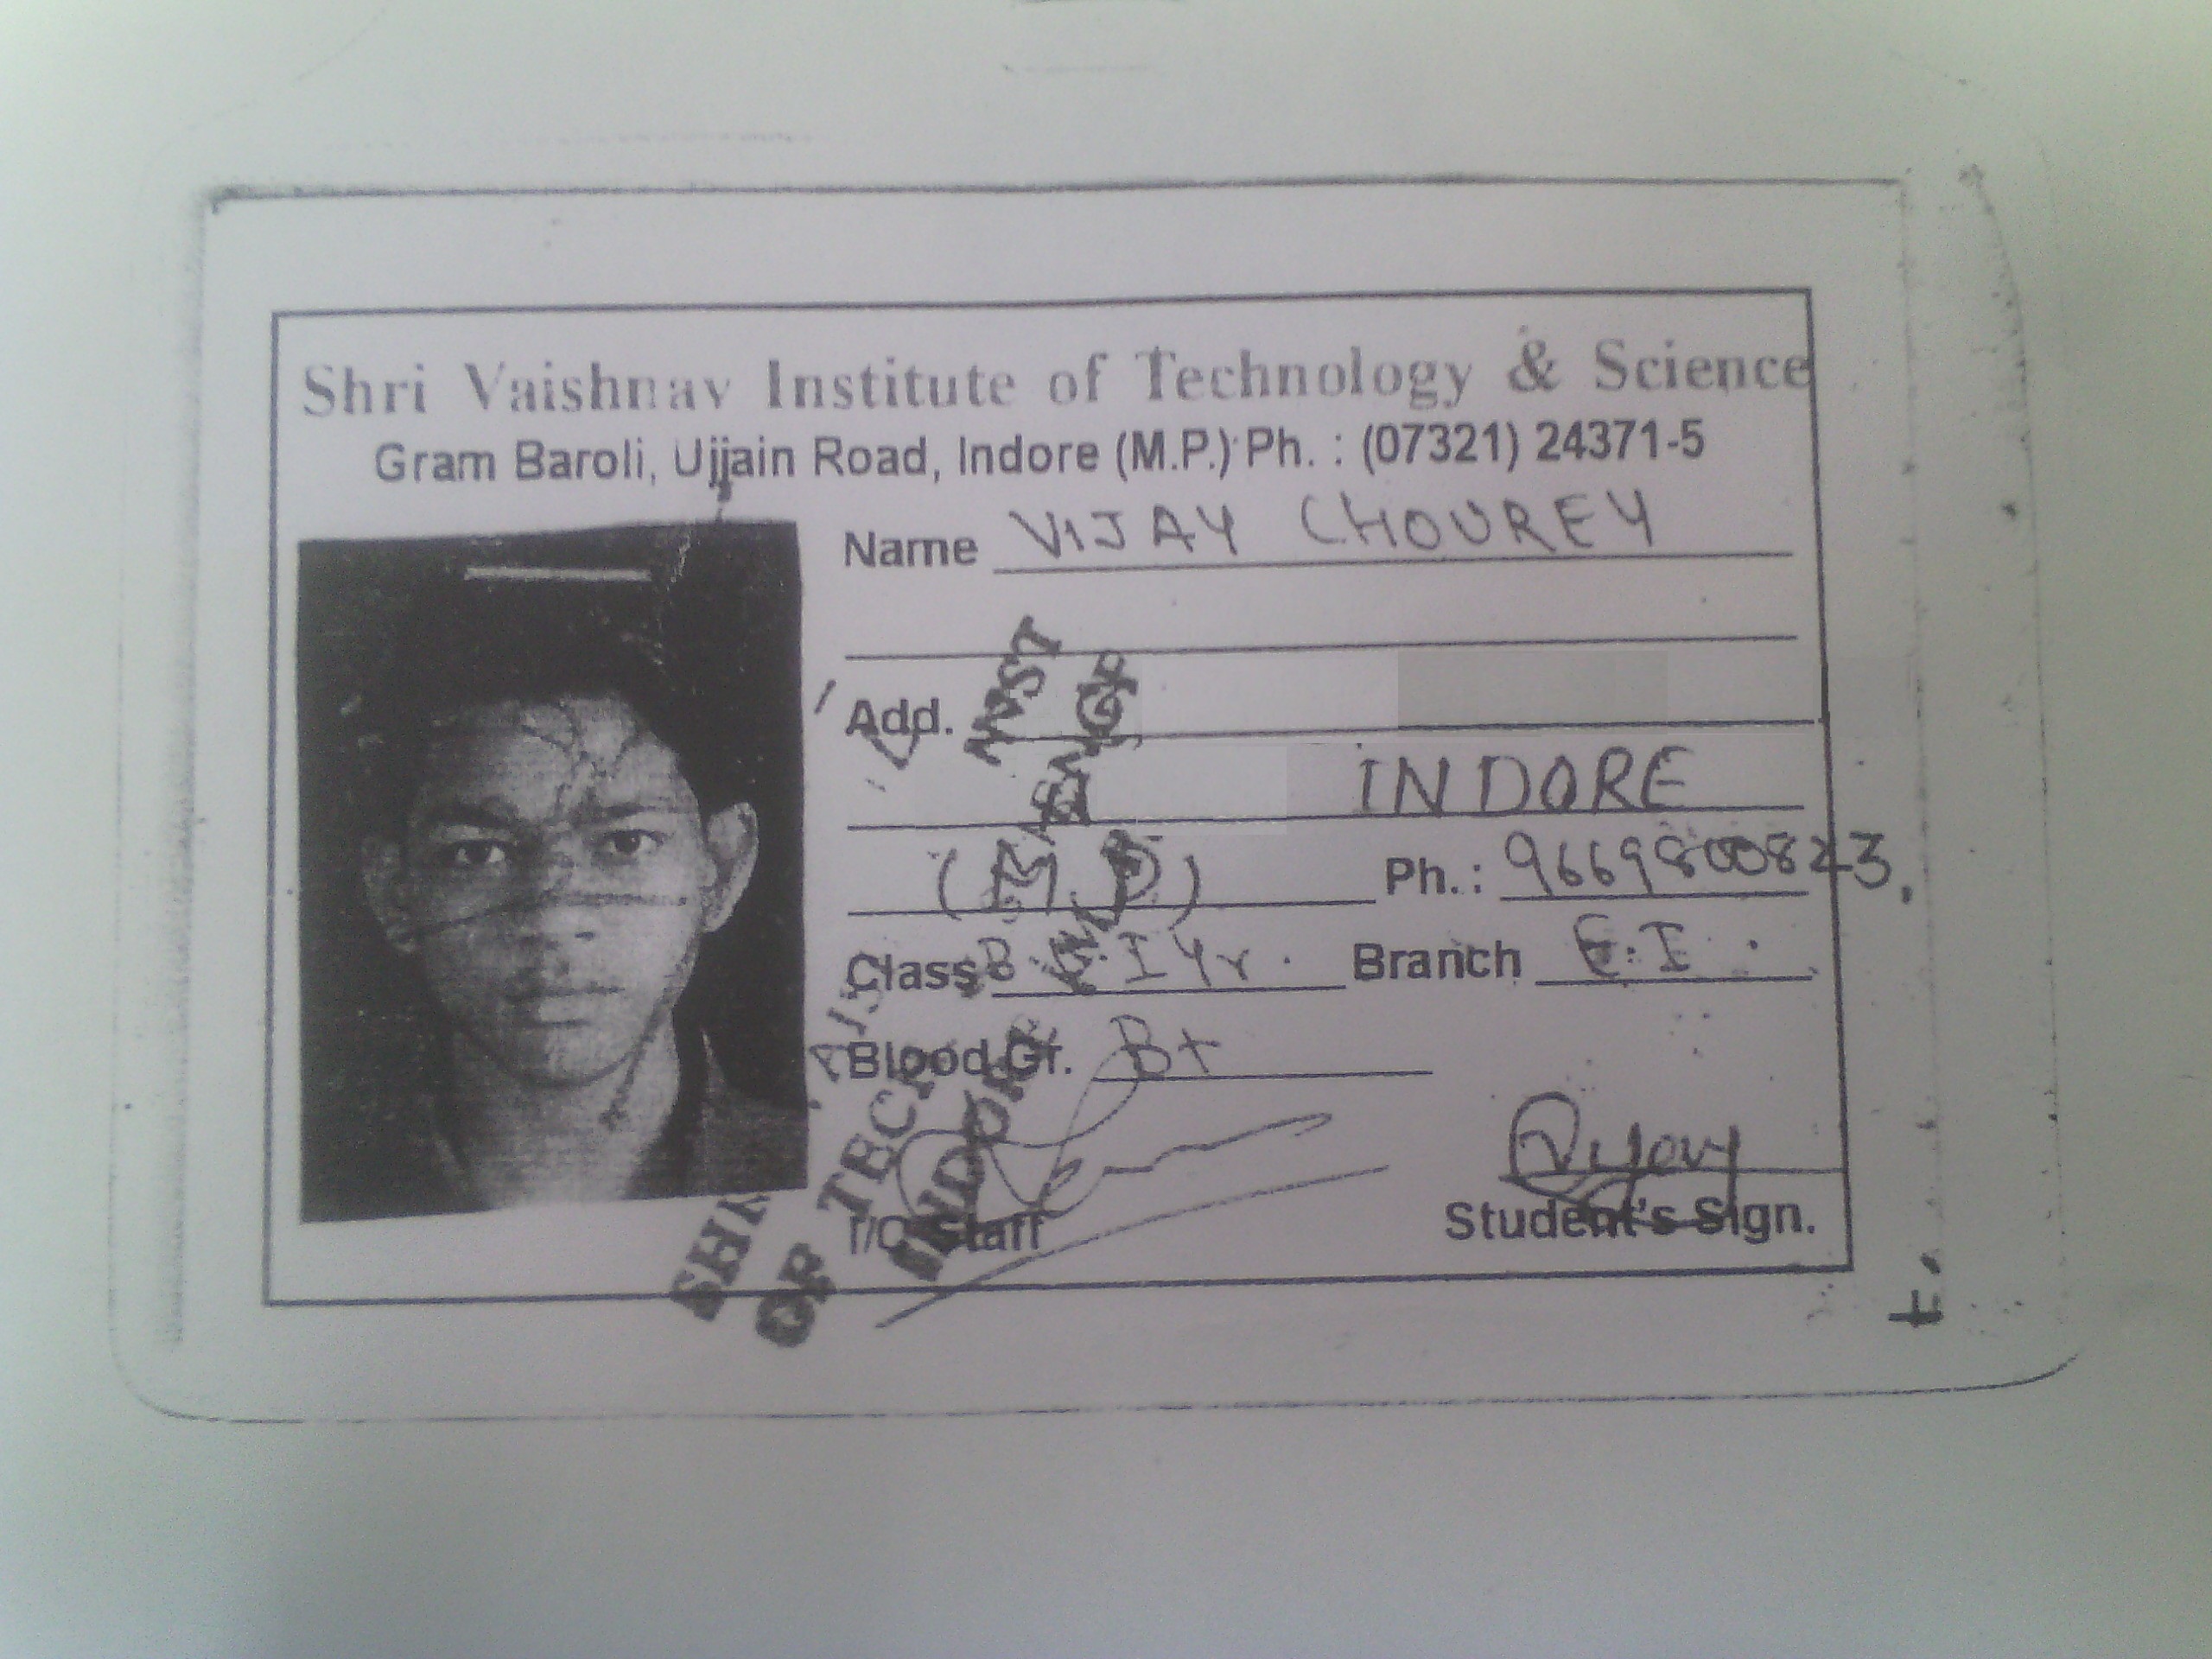 Shri Vaishnav Institute of Technology & Science
Gram Baroli, Ujjain Road, Indore (M.P.) Ph. : (07321) 24371-5
Name VIJAY CHOUREY
Add.
INDORE
(M.P.) Ph. : 9669800823.
Class B.E. I Yr. Branch E.I.
Blood Gr. B+
Vijay
I/C Staff Student's Sign.
OF TECH
INDORE